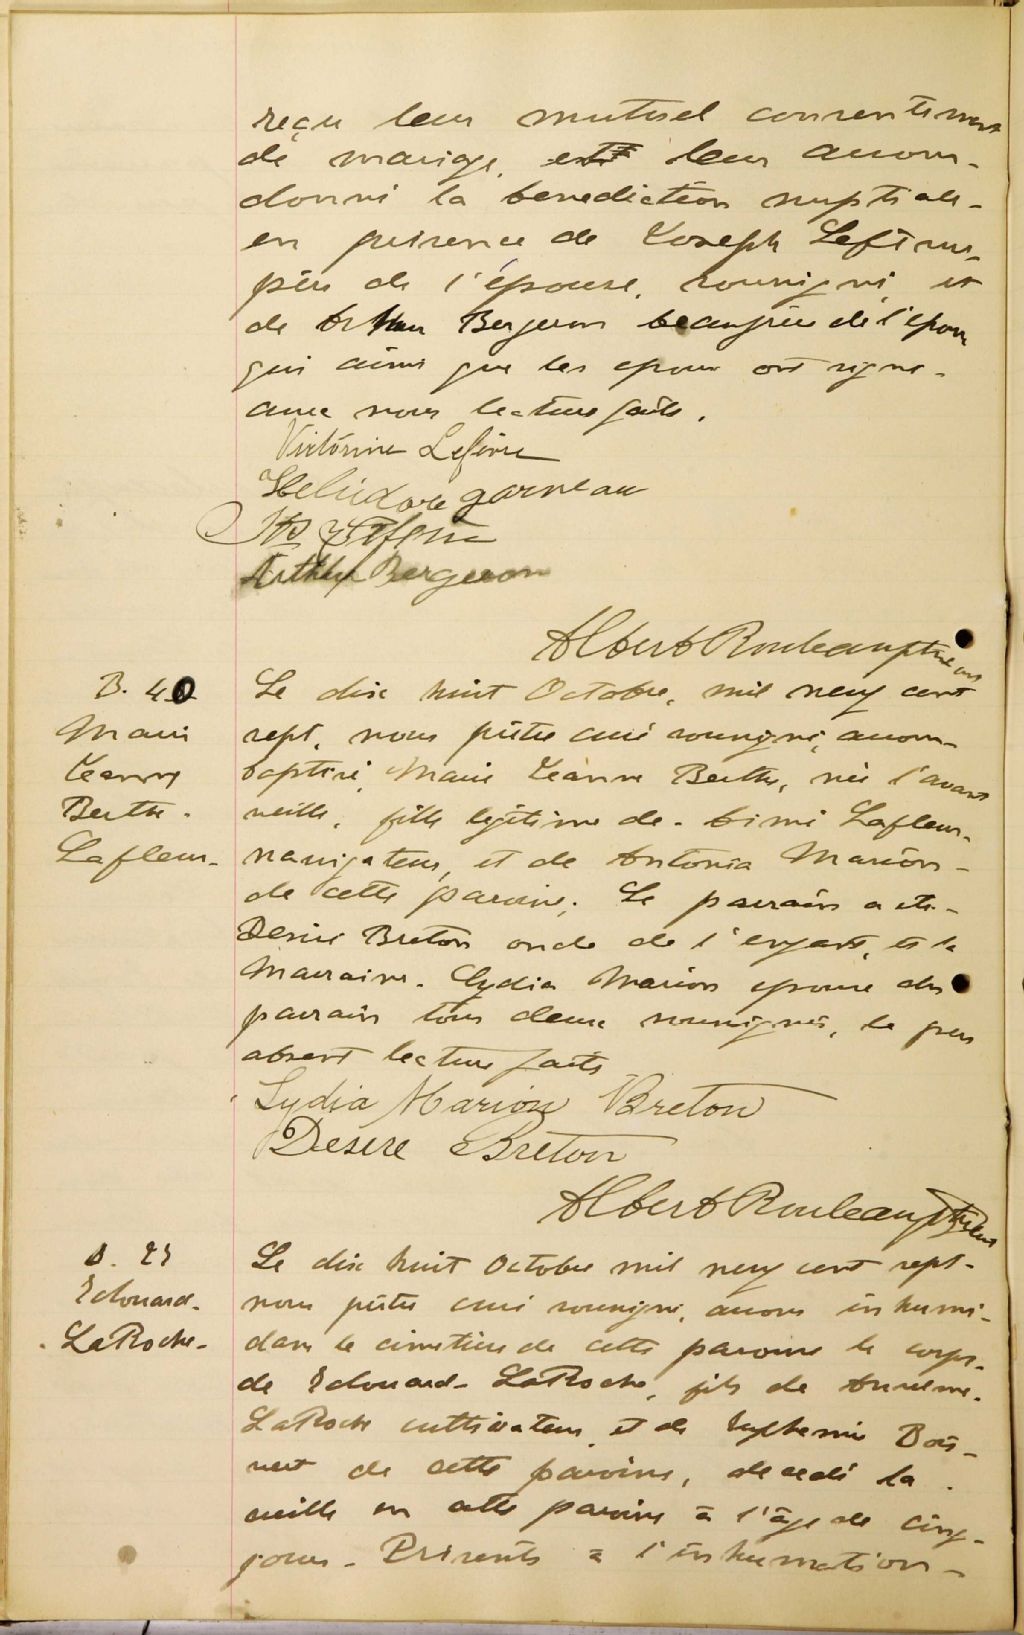 reçu leur mutuel consentement
de mariage, et leur avons
donné la bénédiction nuptiale
en présence de Joseph Lefèvre
père de l'épouse, soussigné, et
de Arthur Bergeron beaufrère de l'époux
qui ainsi que les epoux ont signé
avec nous lecture faite.
Victorine Lefèvre
Heliodore Garneau
Jos Lefevre
Arthur Bergeron
Albert Rouleau ptre curé
B. 40
Marie
Jeanne
Berthe.
Lafleur.
Le dix huit Octobre, mil neuf cent
sept, nous prêtre curé soussigné, avons
baptisé, Marie Jeanne Berthe, née l'avant
veille, fille légitime de Aimé Lafleur
navigateur, et de Antonia Marion
de cette paroisse. Le parrain a été
Désiré Breton oncle de l'enfant, et la
Marraine Lydia Marion epouse du
parrain tous deux soussignés, le père
absent lecture faite
Lydia Marion Breton
Desire Breton
Albert Rouleau ptre curé
Edouard
LaRoche
Le dix huit Octobre mil neuf cent sept
nous prêtre curé soussigné, avons inhumé
dans le cimetière de cette paroisse le corps
de Edouard LaRoche, fils de Anselme
LaRoche cultivateur, et de Euphemie Bois-
vert de cette paroisse, decedé la
veille en cette paroisse à l'âge de cinq
jours. Présents à l'inhumation